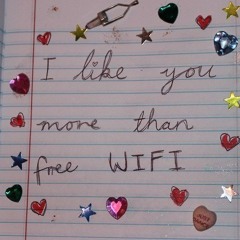 I like you
more than
free WIFI